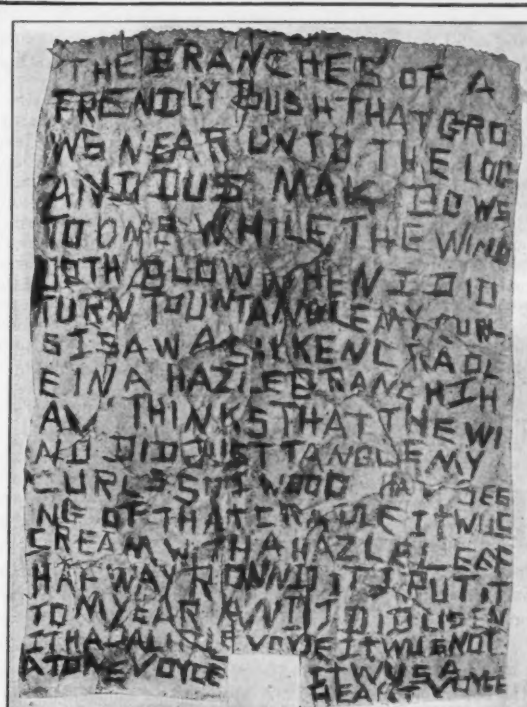 THE BRANCHES OF A
FRENDLY BUSH THAT GRO
WS NEAR UNTO THE LOG
AND DUS MAK BOWS
TO ONE WHILE THE WIND
DOTH BLOW WHEN I DID
TURN TO UNTANGLE MY CURL
S I SAW A SILKEN CRADL
E IN A HAZLE BRANCH I H
AV THINKS THAT THE WI
ND DID JUST TANGLE MY
CURLS SO I WOOD HAV SEE
NG OF THAT CRADLE IT WUS
CREAM WITH A HAZLE LEEF
HAF WAY ROWND IT I PUT IT
TO MY EAR AN I DID LISEN
IT HAD A LITTLE VOYCE IT WUS NOT
A TONE VOYCE IT WUS A
HEART VOYCE